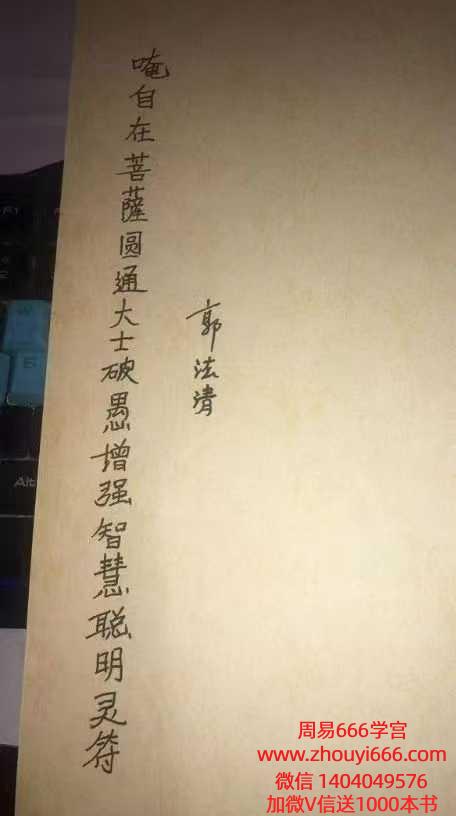 唵自在菩萨圆通大士破愚增强智慧聪明灵符
郭法清
F1
Alt
周易666学宫
www.zhouyi666.com
微信 1404049576
加微V信送1000本书